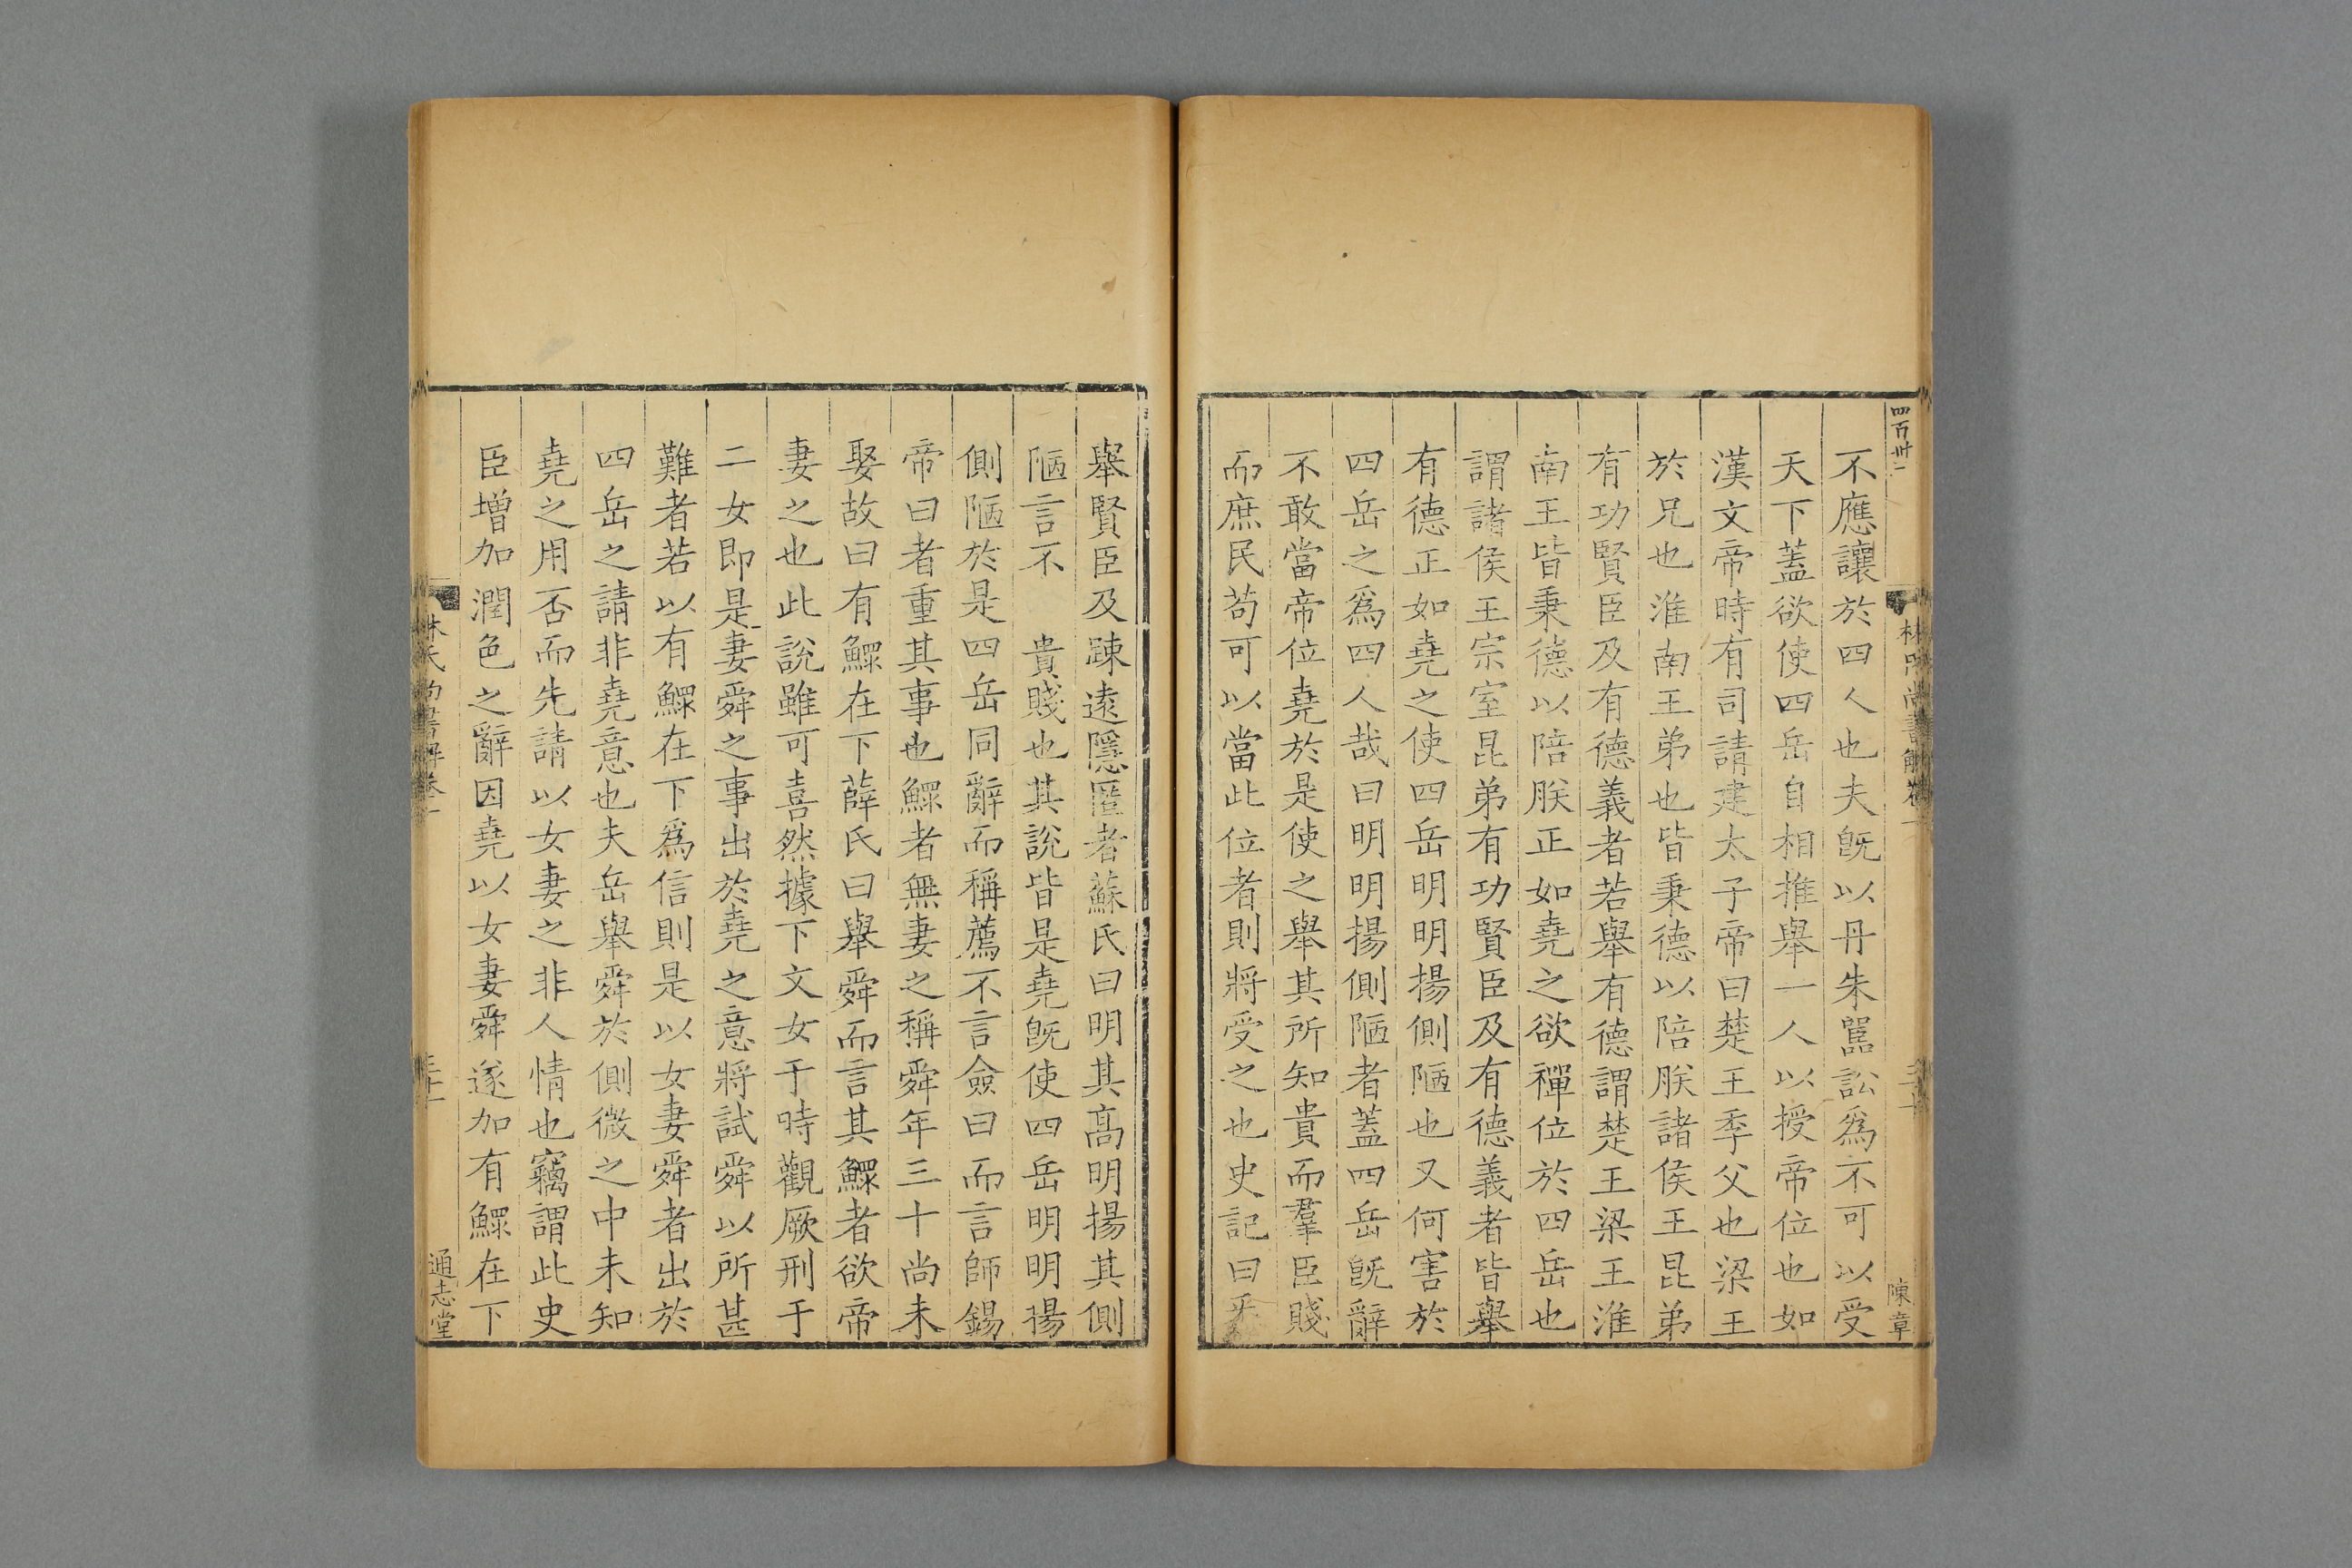 四百卅一
林氏尚書解卷一
陳章
不應讓於四人也夫旣以丹朱嚚訟爲不可以受
天下蓋欲使四岳自相推舉一人以授帝位也如
漢文帝時有司請建太子帝曰楚王季父也梁王
於兄也淮南王弟也皆秉德以陪朕諸侯王昆弟
有功賢臣及有德義者若舉有德謂楚王梁王淮
南王皆秉德以陪朕正如堯之欲禪位於四岳也
謂諸侯王宗室昆弟有功賢臣及有德義者皆舉
有德正如堯之使四岳明明揚側陋也又何害於
四岳之爲四人哉曰明明揚側陋者蓋四岳旣辭
不敢當帝位堯於是使之舉其所知貴而羣臣賤
而庶民苟可以當此位者則將受之也史記曰
舉賢臣及踈遠隱匿者蘇氏曰明其高明揚其側
陋言不 貴賤也其說皆是堯旣使四岳明明揚
側陋於是四岳同辭而稱薦不言僉曰而言師錫
帝曰者重其事也鰥者無妻之稱舜年三十尚未
娶故曰有鰥在下薛氏曰舉舜而言其鰥者欲帝
妻之也此說雖可喜然據下文女于時觀厥刑于
二女即是妻舜之事出於堯之意將試舜以所甚
難者若以有鰥在下爲信則是以女妻舜者出於
四岳之請非堯意也夫岳舉舜於側微之中未知
堯之用否而先請以女妻之非人情也竊謂此史
臣增加潤色之辭因堯以女妻舜遂加有鰥在下
林氏尚書解卷一
通志堂